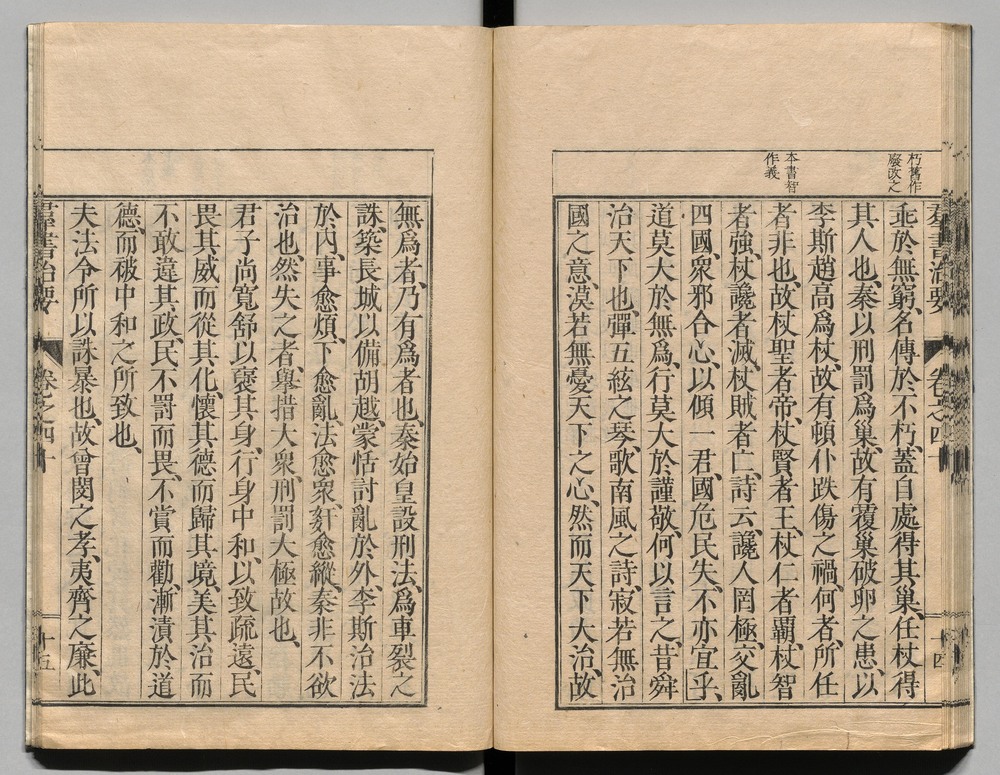 朽舊作
廢改之
本書智
作義
羣書治要 卷之四十 十四
乖於無窮、名傳於不朽、蓋自處得其巢、任杖得
其人也、秦以刑罰爲巢、故有覆巢破卵之患、以
李斯趙高爲杖、故有頓仆跌傷之禍、何者、所任
者非也、故杖聖者帝、杖賢者王、杖仁者霸、杖智
者強、杖讒者滅、杖賊者亡、詩云、讒人罔極、交亂
四國、衆邪合心、以傾一君、國危民失、不亦宜乎、
道莫大於無爲、行莫大於謹敬、何以言之、昔舜
治天下也、彈五絃之琴、歌南風之詩、寂若無治
國之意、漠若無憂天下之心、然而天下大治、故
無爲者、乃有爲者也、秦始皇設刑法、爲車裂之
誅、築長城以備胡越、蒙恬討亂於外、李斯治法
於內、事愈煩、下愈亂、法愈衆、姧愈縱、秦非不欲
治也、然失之者、舉措大衆、刑罰大極故也、
君子尚寬舒以襃其身、行身中和、以致疏遠、民
畏其威而從其化、懷其德而歸其境、美其治而
不敢違其政、民不罰而畏、不賞而勸、漸漬於道
德、而破中和之所致也、
夫法令所以誅暴也、故曾閔之孝、夷齊之廉、此
羣書治要 卷之四十 十五